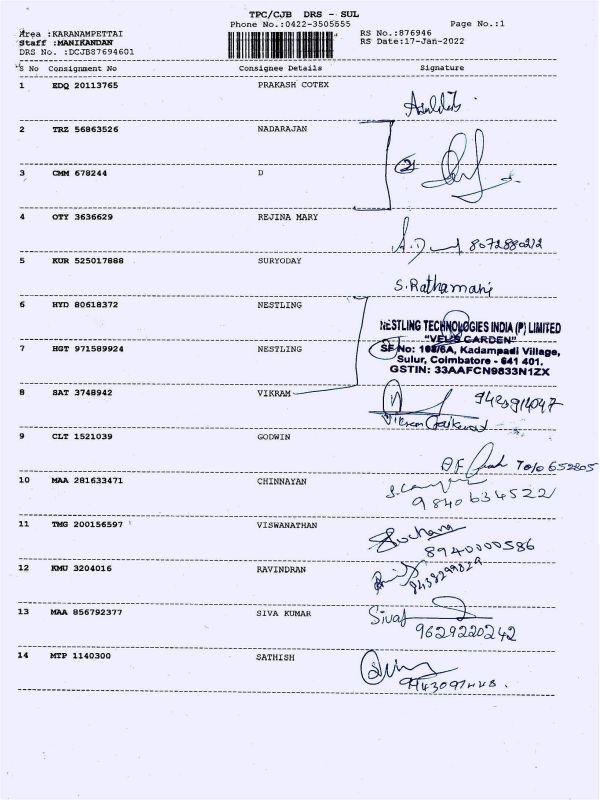 TPC/CJB DRS - SUL
Phone No.:0422-3505555 Page No.:1
Area :KARANAMPETTAI RS No.:876946
Staff :MANIKANDAN RS Date:17-Jan-2022
DRS No. :DCJB87694601
S No Consignment No Consignee Details Signature
1 EDQ 20113765 PRAKASH COTEX
2 TRZ 56863526 NADARAJAN
2
3 CMM 678244 D
4 OTY 3636629 REJINA MARY
8072880212
5 KUR 525017888 SURYODAY
S. Rathamani
6 HYD 80618372 NESTLING
NESTLING TECHNOLOGIES INDIA (P) LIMITED
"VELS GARDEN"
7 HGT 971589924 NESTLING
SF No: 108/6A, Kadampadi Village,
Sulur, Coimbatore - 641 401.
GSTIN: 33AAFCN9833N1ZX
8 SAT 3748942 VIKRAM
9420914047
9 CLT 1521039 GODWIN
652805
10 MAA 281633471 CHINNAYAN
9840634522
11 TMG 200156597 VISWANATHAN
Suchana
8940000586
12 KMU 3204016 RAVINDRAN
8438299829
13 MAA 856792377 SIVA KUMAR
9629220242
14 MTP 1140300 SATHISH